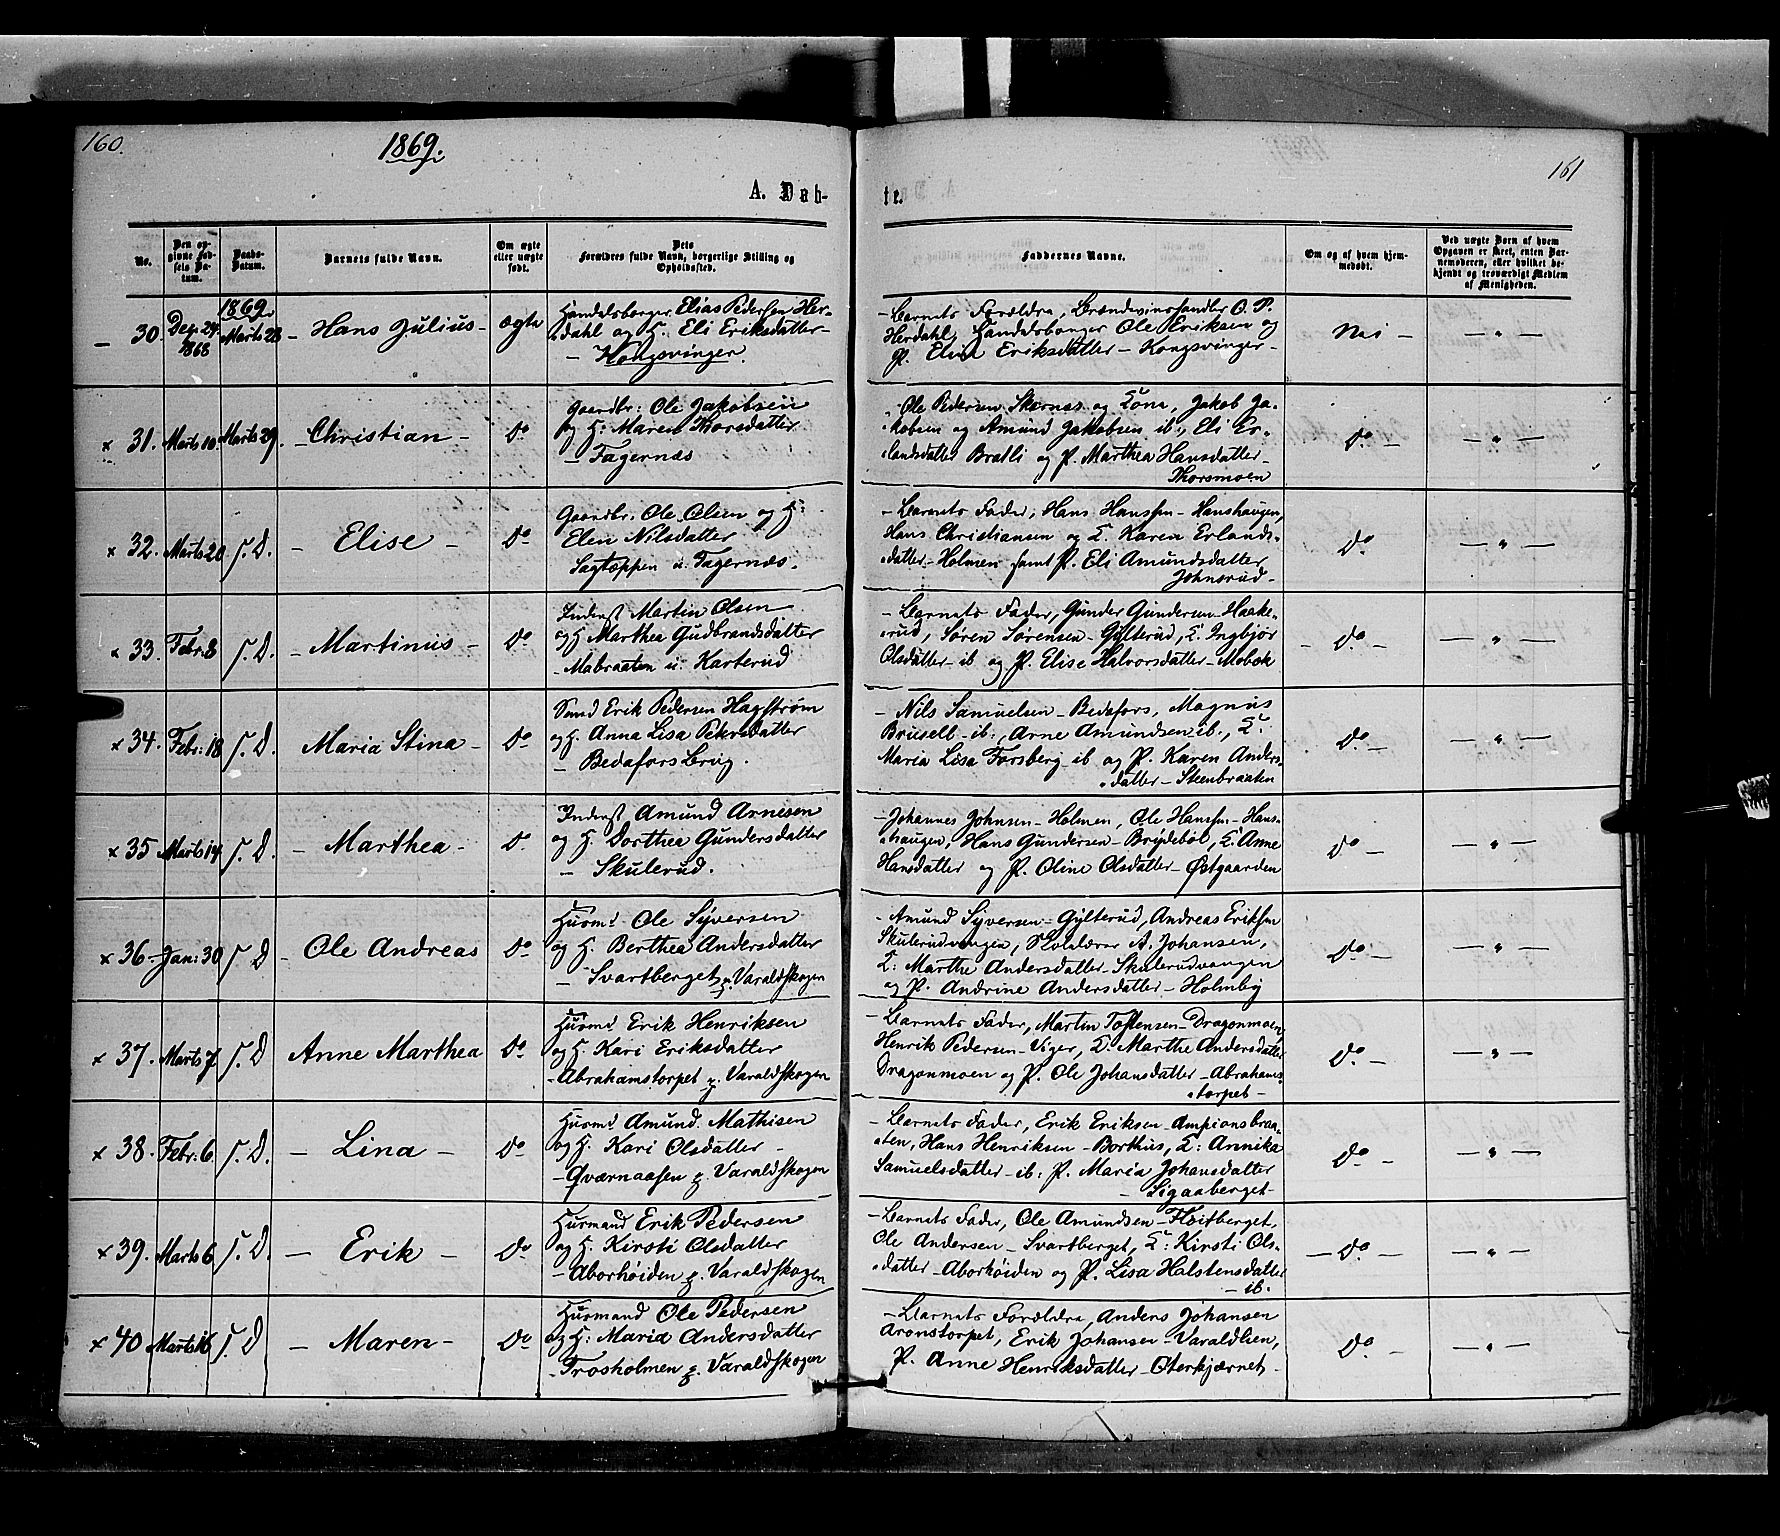 160.
1869.
161
A. Døb-
te.
No.
Den op-
givne Fød-
sels Da-
tum.
Daabs-
Datum.
Barnets fulde Navn.
Om ægte
eller uægte
født.
Dets
Forældres fulde Navn, borgerlige Stilling og
Opholdssted.
Faddernes Navne.
Om og af hvem hjem-
medøbt.
Ved uægte Børn af hvem
Opgaven er skeet, enten Bar-
nemoderen, eller hvilket be-
kjendt og troværdigt Medlem
af Menigheden.
30.
Dec. 29
1868
1869.
Marts 28
- Hans Julius -
ægte
Handelsborger Elias Pedersen Her-
dahl og H. Eli Eriksdatter -
- Kongsvinger.
- Barnets Forældre, Brændevinshandler O. P.
Herdahl, Handelsborger Ole Eriksen og
P. Eline Eriksdatter - Kongsvinger -
Nei -
- " -
x 31.
Marts 10.
Marts 29.
- Christian -
do
Gaardbr: Ole Jakobsen
og H. Maren Thorsdatter
- Fagernæs
Ole Pedersen Skærnæs og Kone, Jakob Ja-
kobsen og Amund Jakobsen ib., Eli Er-
landsdatter Bratli og P. Marthea Hansdatter -
Thorsmoen
do -
- " -
x 32.
Marts 20
s. D.
- Elise -
do
Gaardbr. Ole Olsen og H:
Elen Nilsdatter
Sagtæppen u. Fagernæs.
- Barnets Fader, Hans Hanssen - Hanshaugen,
Hans Christiansen og K. Karen Erlands-
datter - Holmen samt P. Eli Amundsdatter
Johnsrud -
do -
- " -
x 33.
Febr: 8
s. D.
- Martinius -
do
Inderst Martin Olsen
og H Marthea Gudbrandsdatter
- Mabraaten u. Karterud
- Barnets Fader, Gunder Gundersen Haake-
rud, Søren Sørensen - Gylterud, K. Ingbjør
Olsdatter - ib og P. Elise Halvorsdatter - Mobæk
- do -
- " -
x 34.
Febr: 18
s. D.
Maria Stina -
do
Smed Erik Pedersen Hagstrøm
og H. Anna Lisa Petersdatter
- Bedafors Brug.
- Nils Samuelsen - Bedafors, Magnus
Brusell - ib:, Arne Amundsen ib., K:
Maria Lisa Forsberg - ib og P. Karen Anders-
datter - Steenbraaten
do -
- " -
x 35
Marts 14
s. D.
- Marthea -
do
Inderst Amund Arnesen
og H. Dorthea Gundersdatter
- Skulerud.
- Johannes Johnsen - Holmen, Ole Hanssen - Hans-
haugen, Hans Gundersen - Brydebøl, K. Anne
Hansdatter og P. Oline Olsdatter - Østgaarden
do -
- " -
x 36
Jan: 30
s. D
- Ole Andreas
do
Husmd Ole Syversen
og H. Berthea Andersdatter
- Svartberget p. Varaldskogen
- Amund Syversen - Gylterud, Andreas Eriksen
Skulerudvangen, Skolelærer A. Johansen,
K: Marthe Andersdatter - Skulerudvangen
og P. Andrine Andersdatter - Holmby
do -
- " -
x 37.
Marts 7
s. D
Anne Marthea
do
Husmd Erik Henriksen
og H. Kari Eriksdatter
- Abrahamstorpet p. Varaldskogen
- Barnets Fader, Martin Tostensen - Dragonmoen,
Henrik Pedersen - Viger, K. Marthe Andersdatter
Dragonmoen og P. Ole Johansdatter - Abrahams-
torpet -
do -
- " -
x 38.
Febr: 6
s. D.
- Lina -
do
Husmd Amund Mathisen
og H. Kari Olsdatter -
- Qværnaasen p. Varaldskogen
- Barnets Fader, Erik Eriksen - Ampionsbraa-
ten, Hans Henriksen - Borthus, K: Annika
Samuelsdatter - ib: P. Maria Johansdatter
- Sigaaberget -
do -
- " -
x 39.
Marts 6
s. D.
- Erik -
do
Husmand Erik Pedersen
og H. Kirsti Olsdatter
- Aborhøiden p. Varaldskogen
- Barnets Fader, Ole Amundsen - Fløitberget,
Ole Andersen - Svartberget, K: Kirsti Ols-
datter - Aborhøiden og P. Lisa Halstensdatter
- ib.
- do -
- " -
x 40
Marts 16
s. D
- Maren -
do
Husmand Ole Pedersen
og H: Maria Andersdatter
- Trosholmen p. Varaldskogen
- Barnets Forældre, Anders Johansen
Aronstorpet, Erik Johansen - Varaldlien,
P. Anne Henriksdatter - Oterkjærnet -
do -
- " -